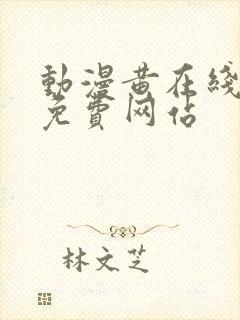 動漫黄在线
免費网站
林文芝